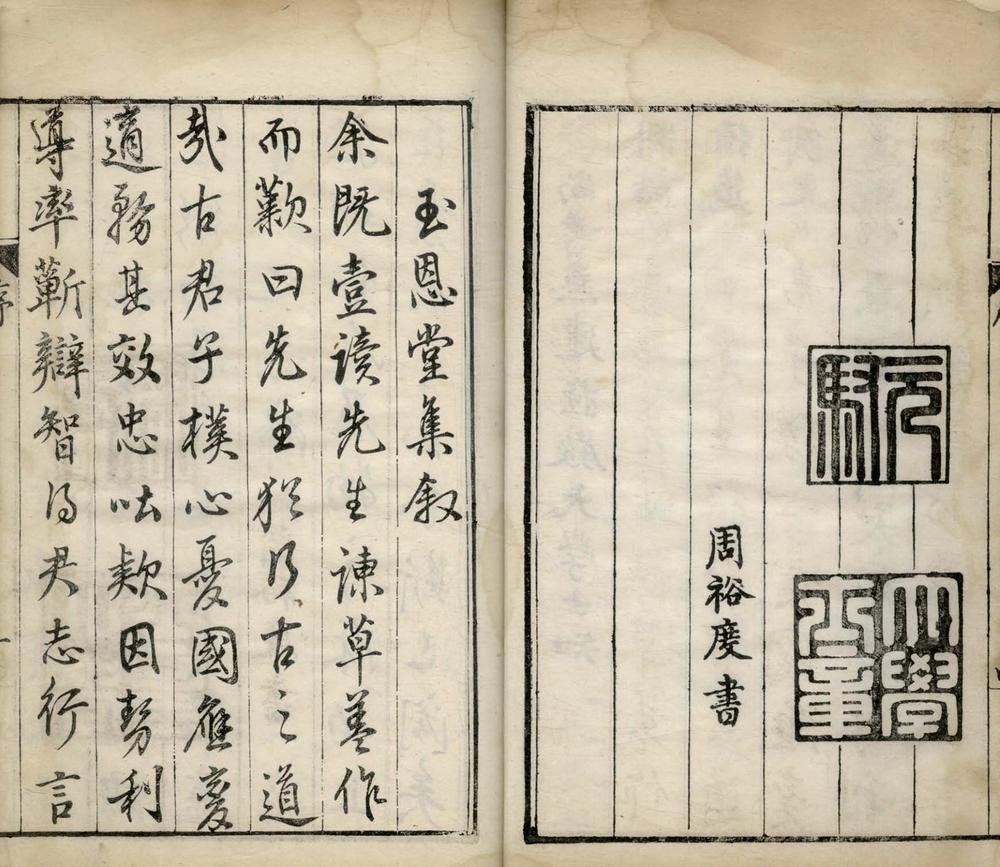 周裕度書
玉恩堂集叙
余既壹讀先生諫草葢作
而歎曰先生猶行古之道
哉古君子樸心憂國應變
適務其效忠呿欵因勢利
導率蘄辯智得君志行言
序
一